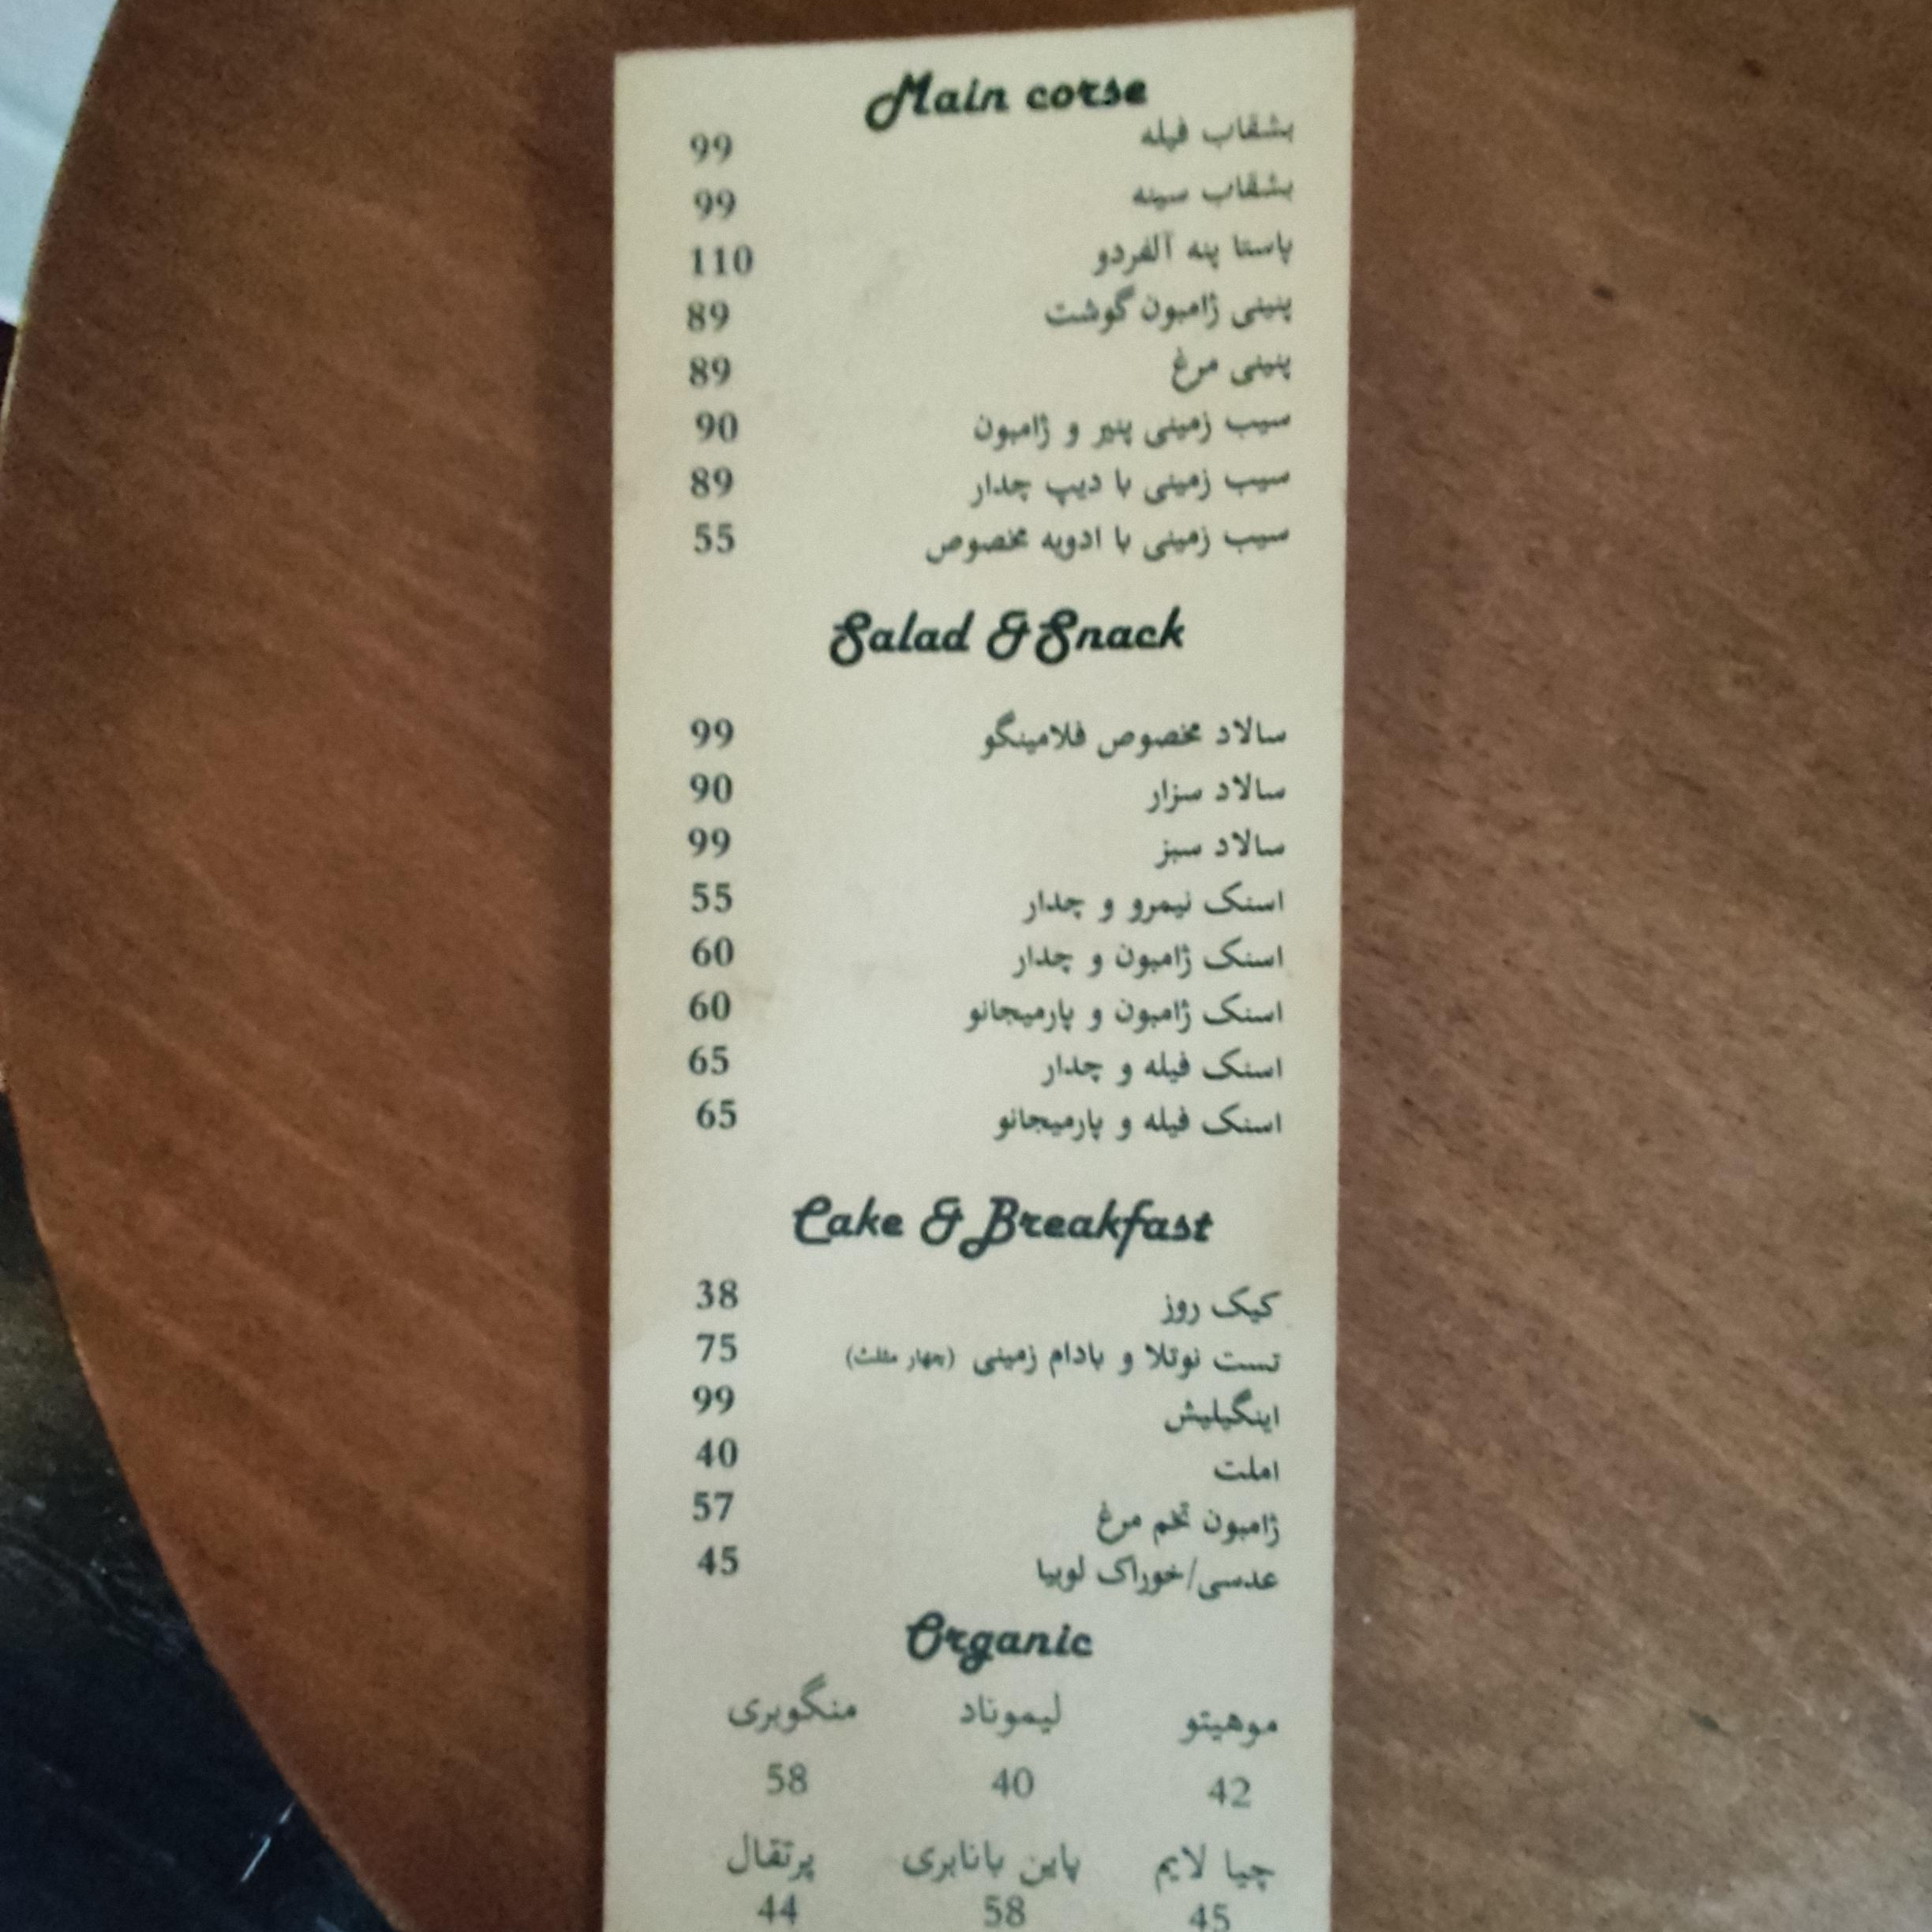 Main corse
بشقاب فیله 99
بشقاب سینه 99
پاستا پنه آلفردو 110
پنینی ژامبون گوشت 89
پنینی مرغ 89
سیب زمینی پنیر و ژامبون 90
سیب زمینی با دیپ چدار 89
سیب زمینی با ادویه مخصوص 55
Salad & Snack
سالاد مخصوص فلامینگو 99
سالاد سزار 90
سالاد سبز 99
اسنک نیمرو و چدار 55
اسنک ژامبون و چدار 60
اسنک ژامبون و پارمیجانو 60
اسنک فیله و چدار 65
اسنک فیله و پارمیجانو 65
Cake & Breakfast
کیک روز 38
تست نوتلا و بادام زمینی (چهار مثلث) 75
اینگیلیش 99
املت 40
ژامبون تخم مرغ 57
عدسی/خوراک لوبیا 45
Organic
موهیتو لیموناد منگوبری
42 40 58
چیا لایم پاین بانابری پرتقال
45 58 44